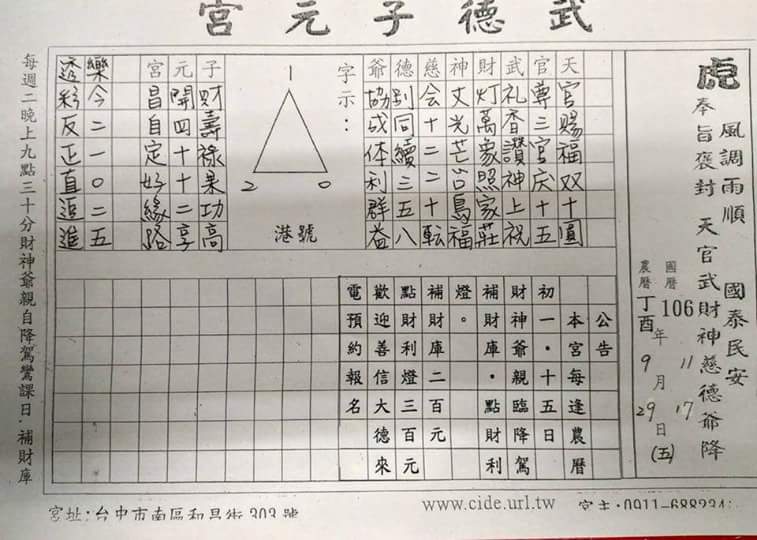 武德子元宮
虎
風調雨順 國泰民安
奉旨褒封 天官武財神慈德爺降
國曆 106 年 11 月 17 日 (五)
農曆 丁酉 9 29
天官賜福双十圓
官尊三官庆十五
武礼香讚神上祝
財灯萬象照家莊
神文光芒島福
慈会十二二十転
德别同續三五八
爺協成体利群益
字示：
1
2 0
港號
子財壽祿果功高
元開四十十二享
宮昌自定好緣路
樂今二一0二五
透彩反正直追進
公告
本宮每逢農曆
初一・十五日
財神爺親臨降駕
補財庫・點財利
燈。
補財庫二百元
點財利燈三百元
歡迎善信大德來
電預約報名
每週二晚上九點三十分財神爺親自降駕鸞課日．補財庫
宮址：台中市南區和昌街303號
www.cide.url.tw
宮主：0911-688234